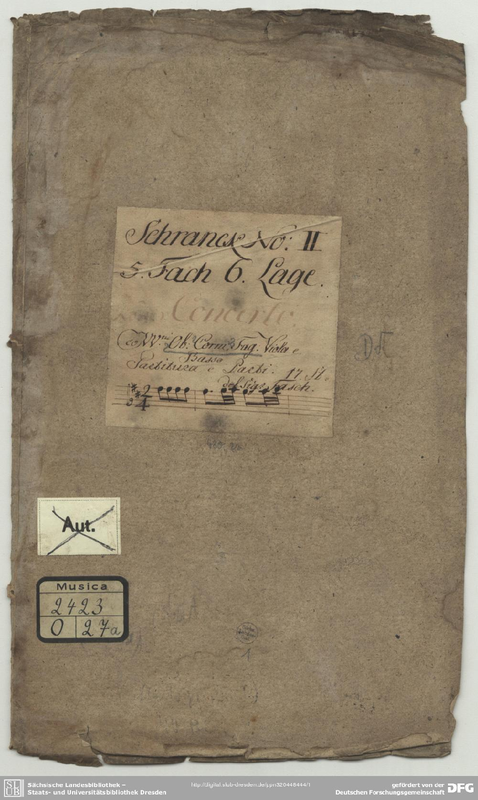 Schranck No: II
5. Fach 6. Lage.
Concerto
co VVni Ob. Corni, Fag. Viola e
Basso
Partitura e Parti. 17 St.
del Sigr. Fasch.
2
4
Aut.
Musica
2423
O 27a
SLUB
Sächsische Landesbibliothek –
Staats- und Universitätsbibliothek Dresden
gefördert von der
Deutschen Forschungsgemeinschaft
DFG